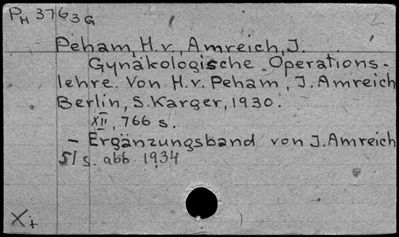 PH 3763G
Peham, H. v., Amreich, J.
Gynäkologische Operations-
lehre. Von H. v. Peham, J. Amreich
Berlin, S. Karger, 1930.
XII, 766 s.
- Ergänzungsband von J. Amreich
51 s. abb 1934
X+